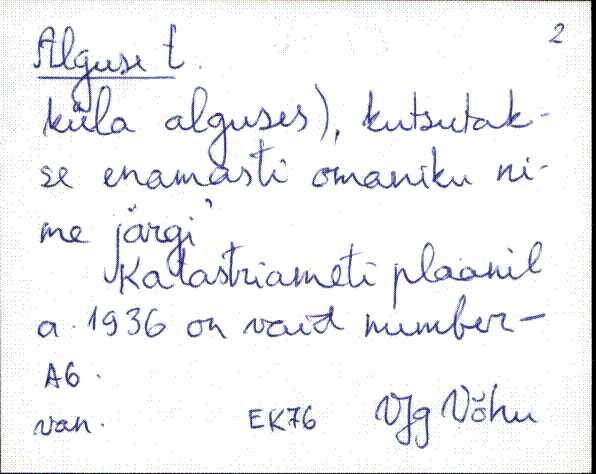 Alguse t. 2
küla alguses), kutsutak-
se enamasti omaniku ni-
me järgi"
Katastriameti plaanil
a. 1936 on vaid number-
A6.
van. EK76 VJg Võhu